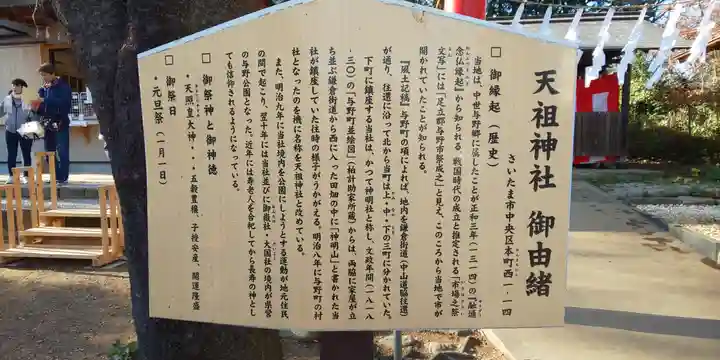 天祖神社 御由緒
さいたま市中央区本町西一-一四
□ 御縁起(歴史)
当地は、中世与野郷に属したことが正和三年(一三一四)の『融通
念仏縁起』から知られる。戦国時代の成立と推定される「市場之祭
文写」には「足立郡与野市祭成之」と見え、このころから当地で市が
開かれていたことが知られる。
『風土記稿』与野町の項によれば、地内を鎌倉街道(中山道脇往還)
が通り、往還に沿って北から当町は上・中・下の三町に分かれていた。
下町に鎮座する当社は、かつて神明社と称し、文政年間(一八一八
〜三〇)の「与野町並絵図」(柏計助家所蔵)からは、両脇に家屋が立
ち並ぶ鎌倉街道から西に入った田畑の中に「神明山」と書かれた当
社が鎮座していた往時の様子がうかがえる。明治八年に与野町の村
社となったのを機に名称を天祖神社と改めている。
また、明治九年に当社境内を公園にしようとする運動が地元住民
の間で起こり、翌十年には当社並びに御嶽社・大国社の境内が県営
の与野公園となった。近年には寿老人を合祀してから長寿の神とし
ても信仰されるようになっている。
□ 御祭神と御神徳
・天照皇大神・・・五穀豊穣、子授安産、開運隆盛
□ 御祭日
・元旦祭(一月一日)